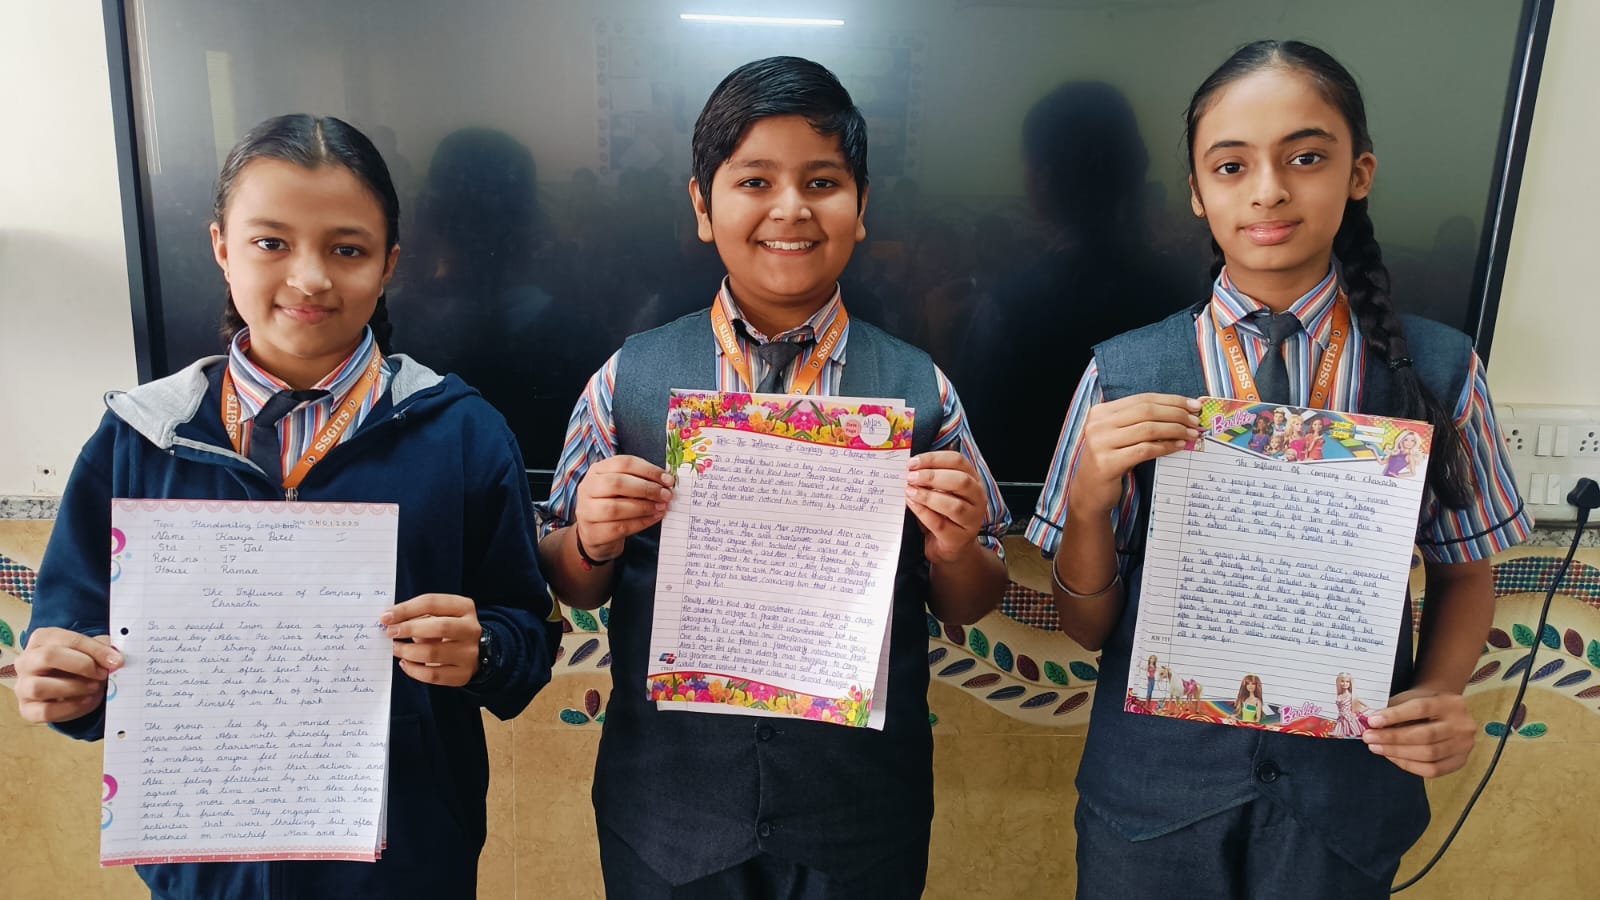 Topic : Handwriting Competition Date
Name : Kavya Patel I
Std : 5th Jal
Roll no : 17
House : Raman
The Influence of Company on
Character
In a peaceful town lived a young boy
named boy Alex. He was know for
his heart strong values and a
genuine desire to help others.
However, he often spent his free
time alone due to his shy nature.
One day, a groupe of older kids
noticed himself in the park
The group, led by a named Max,
approached Alex with friendly smiles
Max was charismatic and had a way
of making anyone feel included. He
invited Alex to join their actives, and
Alex, feeling flattered by the attention,
agreed. As time went on, Alex began
spending more and more time with Max
and his friends. They engaged in
activities that were thrilling but often
bordered on mischief. Max and his
SSGITS
SSGITS
Date
Page
Topic - The Influence of Company on Character II
In a Peaceful town lived a boy named Alex. He was
known as for his kind heat, Strong values, and a
genuine desire to help others. However, he often spent
his free time alone due to his shy nature. One day, a
group of older kids noticed him sitting by himself in
the Park
The group, led by a boy Max, approached Alex with
friendly smiles. Max was charismatic and had a way
for making anyone feel included. He invited Alex to
join their activities, and Alex, feeling flattered by the
attention, agreed. As time went on, Alex began spending
more and more time with Max and his friends encouraged
Alex to bend his values, convincing him that it was all
in good fun.
Slowly, Alex's kind and considerate nature began to change.
He started to engage in pranks and
wrongdoing. Deep down, he felt uncomfortable, but he
desire to fit in with his new Companions kept him going
One day, as he Plotted a particularly mischievous Prank,
Alex's eyes fell upon an elderly man struggling to carry
his groceries. He remembered his old self, the one who
would have rushed to help without a second thought.
SSGITS
SSGITS
Barbie
The Influence Of Company on Character
In a peaceful town lived a young boy named
Alex. He was known for his kind heart, strong
values, and a genuine desire to help others.
However, he often spent his free time alone due to
his shy nature. One day, a group of older
kids noticed him sitting by himself in the
park...
The group, led by a boy named Max, approached
Alex with friendly smiles. Max was charismatic and
had a way anyone feel included. He invited Alex to
join their activities and Alex, feeling flattered by
the attention agreed. As time went on, Alex began
spending more and more time with Max and his
friends. They engaged in activities that was thrilling but
often bordered on mischief. Max and his friends encouraged
Alex to bend his values, convincing him that it was
all in good fun.
Barbie
SSGITS
SSGITS